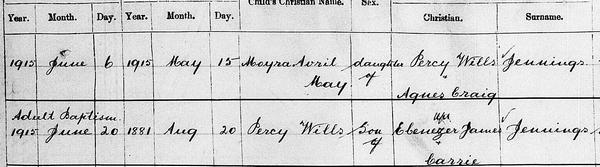 Child's Christian Name. Sex.
Year. Month. Day. Year. Month. Day. Christian. Surname.
1915 June 6 1915 May 15 Moyra Avril daughter Percy Wills Jennings
May of
Agnes Craig
Adult Baptism
1915 June 20 1881 Aug 20 Percy Wills Son Ebenezer James Jennings
of
Carrie